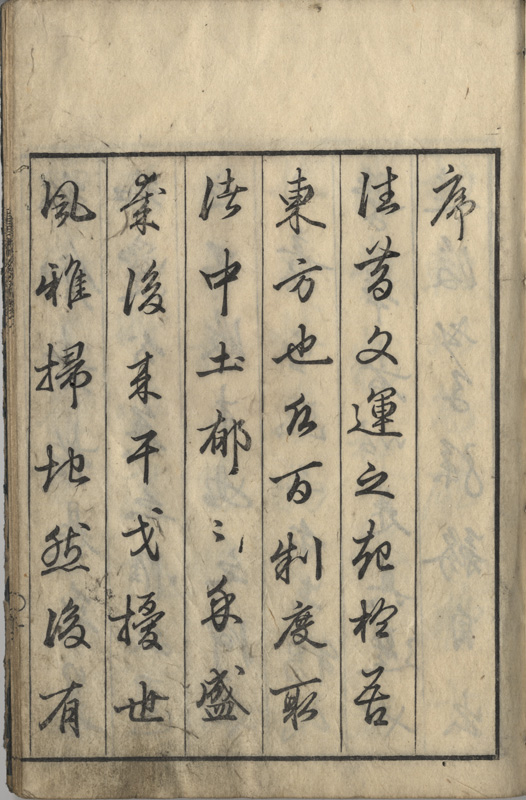 序
往昔文運之起於吾
東方也凡百制度取
法中土郁〻乎盛
矣後来干戈擾世
風雅掃地然後有